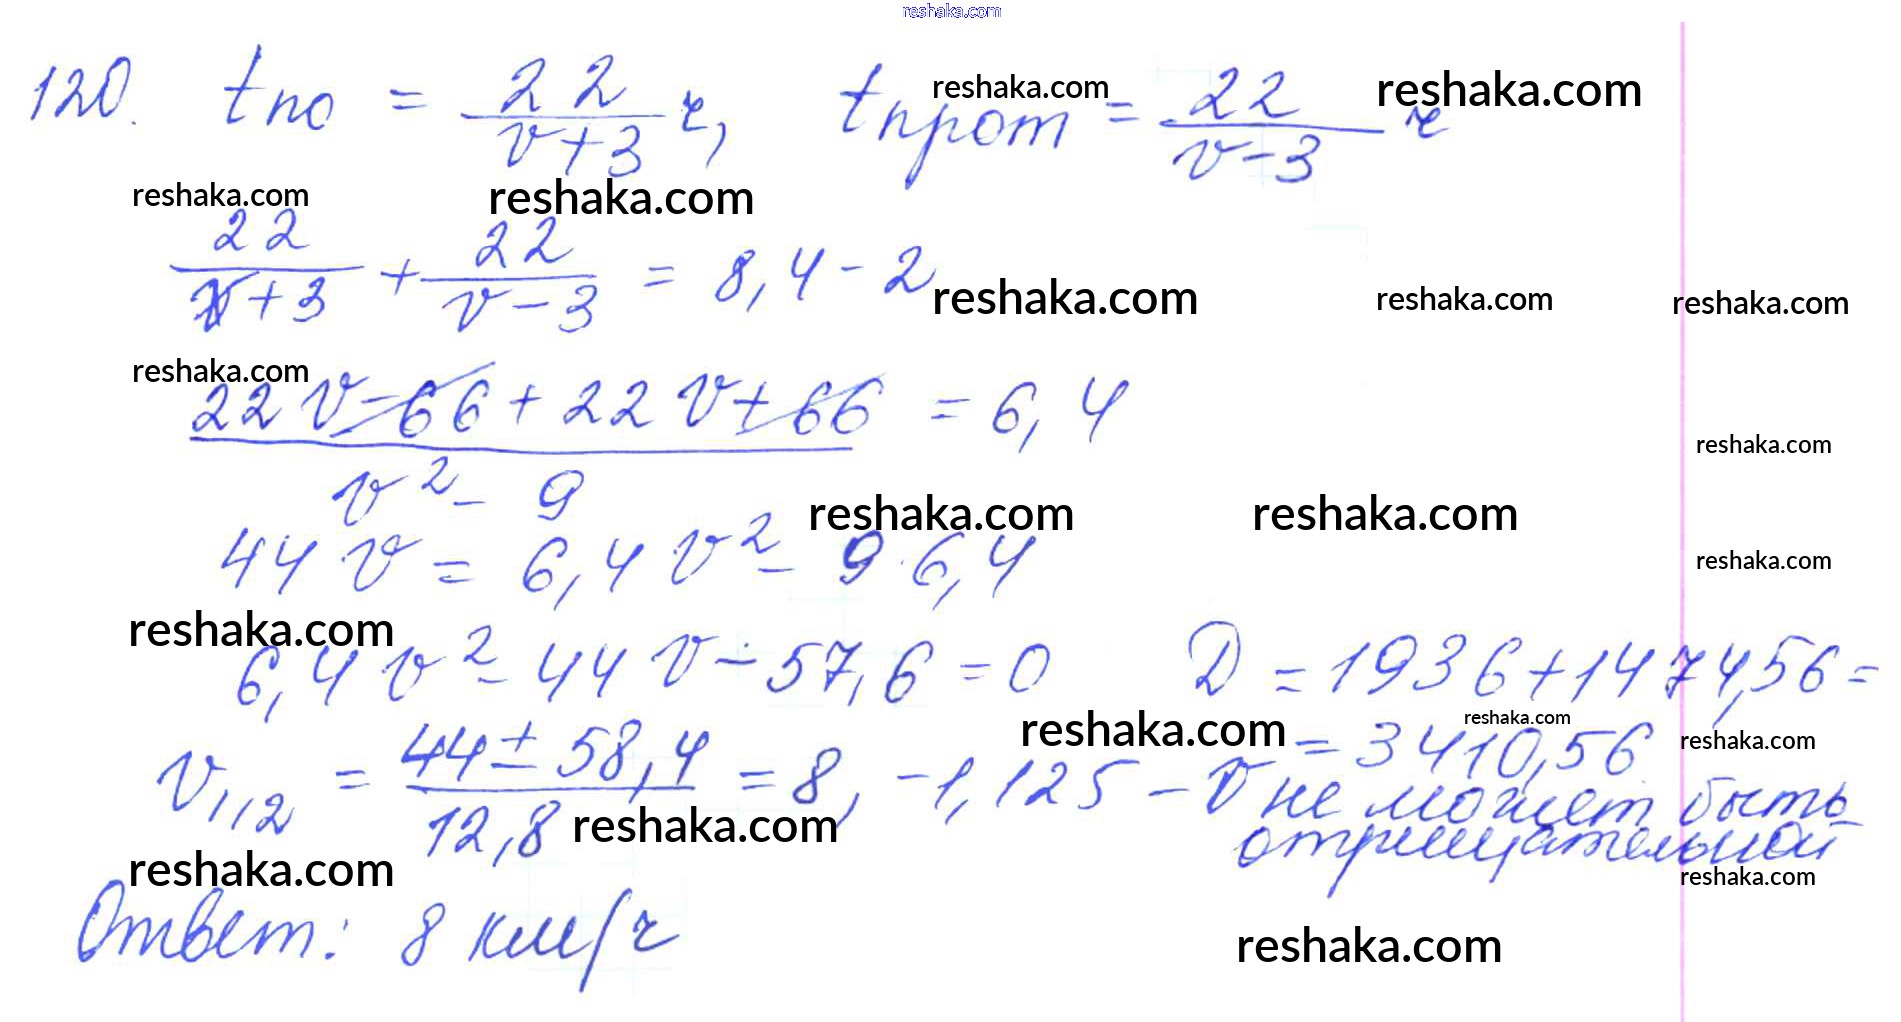 reshaka.com
120. tпо = 22/(v+3) ч, tпрот = 22/(v-3) ч
reshaka.com reshaka.com
reshaka.com reshaka.com
22/(v+3) + 22/(v-3) = 8,4 - 2
reshaka.com reshaka.com reshaka.com
reshaka.com
(22v - 66 + 22v + 66)/(v² - 9) = 6,4
reshaka.com
reshaka.com reshaka.com
44v = 6,4v² - 9·6,4
reshaka.com
reshaka.com
6,4v² - 44v - 57,6 = 0 D = 1936 + 1474,56 =
reshaka.com reshaka.com reshaka.com
= 3410,56
v1,2 = (44 ± 58,4)/12,8 = 8, -1,125 - v не может быть
отрицательной
reshaka.com
reshaka.com reshaka.com
Ответ: 8 км/ч
reshaka.com